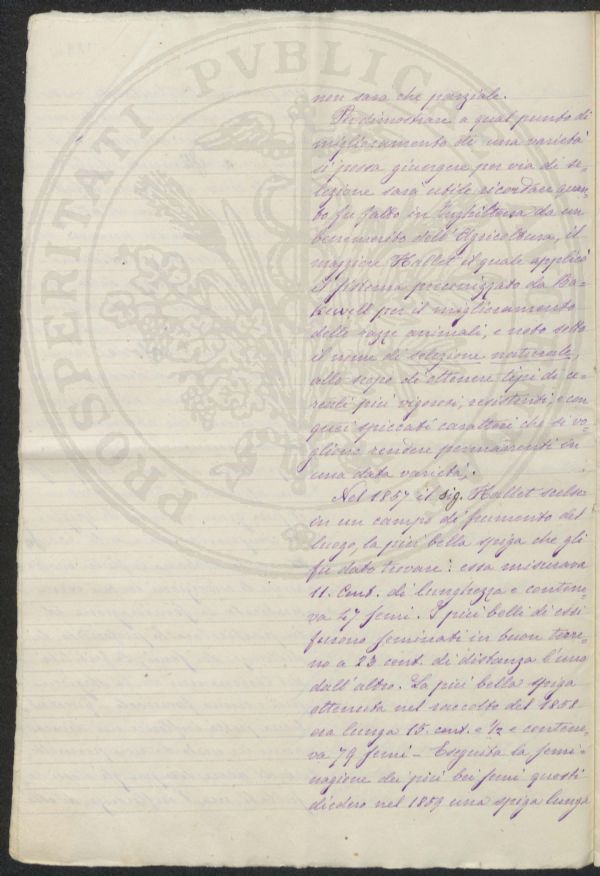 PROSPERITATI PVBLICAE
non sarà che parziale.
Per dimostrare a qual punto di
miglioramento di una varietà
si possa giungere per via di se-
lezione sarà utile ricordare quan-
to fu fatto in Inghilterra da un
benemerito dell'Agricoltura, il
maggiore Hallet il quale applicò
il sistema preconizzato da Ba-
kewell per il miglioramento
delle razze animali, e noto sotto
il nome di selezione naturale,
allo scopo di ottenere tipi di ce-
reali più vigorosi, resistenti e con
quei spiccati caratteri che si vo-
gliono rendere permanenti in
una data varietà.
Nel 1857 il sig. Hallet scelse
in un campo di frumento del
luogo, la più bella spiga che gli
fu dato trovare: essa misurava
11. Cent. di lunghezza e contene-
va 47 semi. I più belli di essi
furono seminati in buon terre-
no a 23 cent. di distanza l'uno
dall'altro. La più bella spiga
ottenuta nel raccolto del 1858
era lunga 15. cent. e ½ e contene-
va 79 semi – Eseguita la semi-
nagione dei più bei semi questi
diedero nel 1859 una spiga lunga